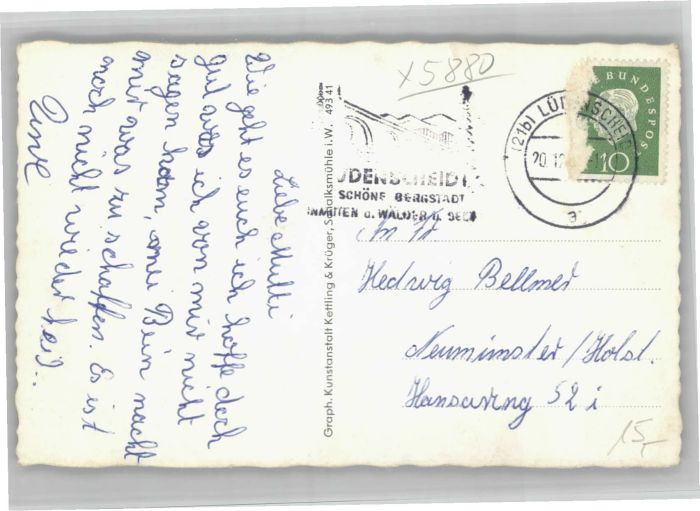 Liebe Mutti
Wie geht es euch ich hoffe doch
gut was ich von mir nicht
sagen kann, mei Bein macht
mir was zu schaffen. Es ist
noch nicht wieder heil..
Graph. Kunstanstalt Kettling & Krüger, Schalksmühle i. W. 493 41
x5880
ÜDENSCHEIDT
SCHÖNE BERGSTADT
INMITTEN v. WÄLDER u. SEEN
(21b) LÜDENSCHEID
20.12.
11
a
E BUNDESPOS
10
An Fr
Hedwig Bellmer
Neumünster/Holst.
Hansaring 52 i
15,-